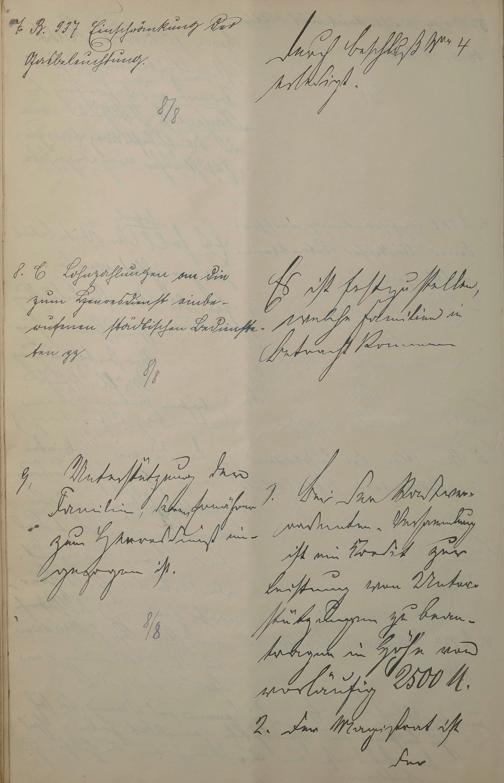 B. 937. Einschränkung der
Gasbeleuchtung.
8/8
Durch Beschluß Nr. 4
erledigt.
8. C Lohnzahlungen an die
zum Heeresdienst einbe-
rufenen städtischen Bedienste-
ten pp.
8/8
Es ist festzustellen,
welche Familien in
Betracht kommen
9. Unterstützung der
Familien, deren Ernährer
zum Heeresdienst ein-
gezogen ist.
8/8
1. Bei der Stadtver-
ordneten-Versammlung
ist ein Kredit zur
Leistung von Unter-
stützungen zu bean-
tragen in Höhe von
vorläufig 2500 M.
2. Der Magistrat ist
der